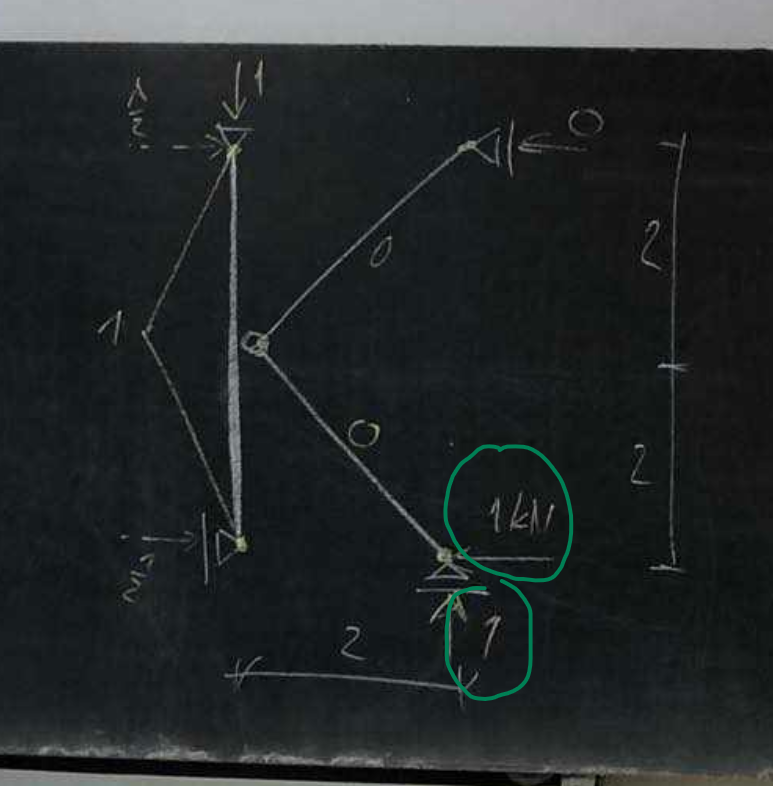 1
1/2
0
2
0
1
0
2
1 kN
1/2
1
2